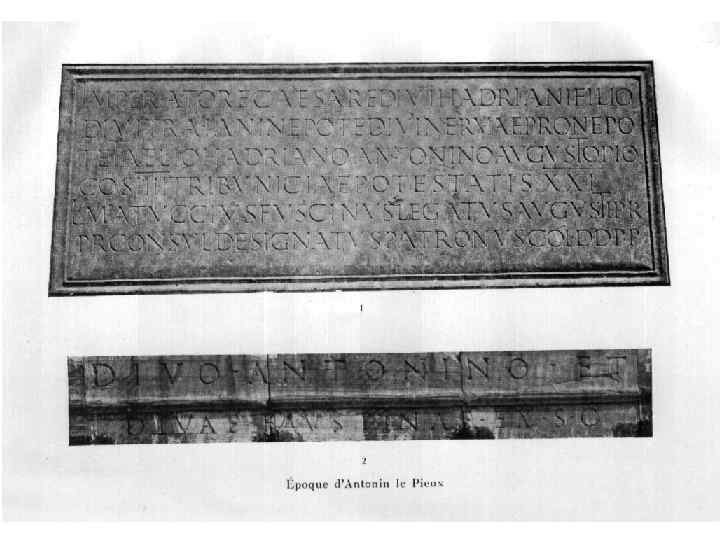 IMPERATORE CAESARE DIVI HADRIANI FILIO
DIVI TRAIANI NEPOTE DIVI NERVAE PRONEPO
TE T AELIO HADRIANO ANTONINO AVGVSTO PIO
COS IIII TRIBVNICIAE POTESTATIS XXI
L MATVCCIVS FVSCINVS LEGATVS AVGVSTI PR
PR CONSVL DESIGNATVS PATRONVS COL D D P P
1
DIVO · ANTONINO · ET
DIVAE FAVSTINAE · EX · S · C
2
Époque d'Antonin le Pieux